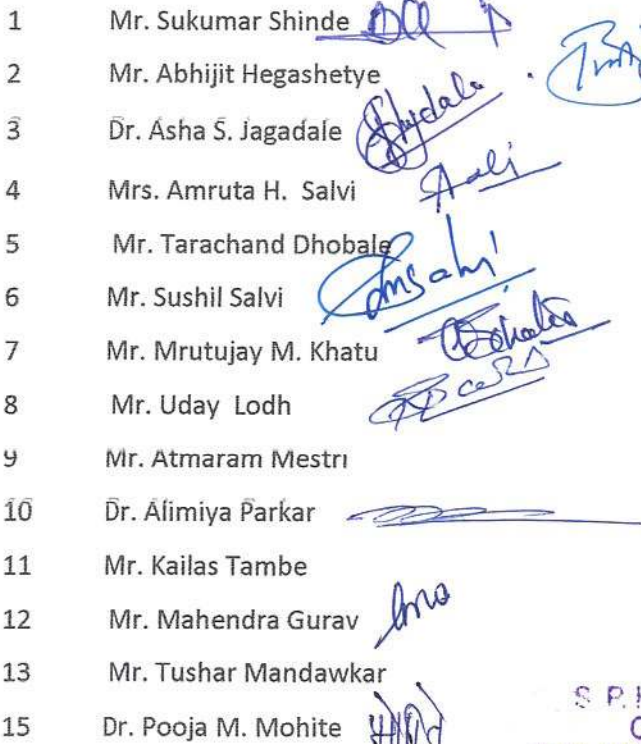 1 Mr. Sukumar Shinde
2 Mr. Abhijit Hegashetye
3 Dr. Asha S. Jagadale
4 Mrs. Amruta H. Salvi
5 Mr. Tarachand Dhobale
6 Mr. Sushil Salvi
7 Mr. Mrutujay M. Khatu
8 Mr. Uday Lodh
9 Mr. Atmaram Mestri
10 Dr. Alimiya Parkar
11 Mr. Kailas Tambe
12 Mr. Mahendra Gurav
13 Mr. Tushar Mandawkar
S.P.
15 Dr. Pooja M. Mohite